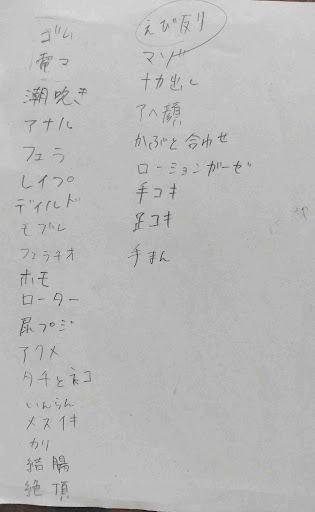 ゴム
電マ
潮吹き
アナル
フェラ
レイプ
ディルド
モブレ
フェラチオ
ホモ
ローター
尿プジー
アクメ
タチとネコ
いんらん
メスイキ
カリ
結腸
絶頂
えび反り
マゾ
ナカ出し
アヘ顔
かぶと合わせ
ローションガーゼ
手コキ
足コキ
手まん